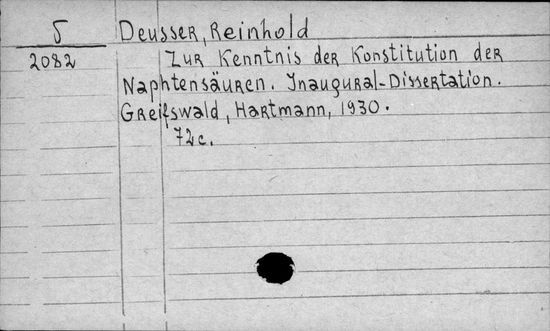 5
Deusser, Reinhold
2082
Zur Kenntnis der Konstitution der
Naphtensäuren. Inaugural-Dissertation.
Greifswald, Hartmann, 1930.
72c.